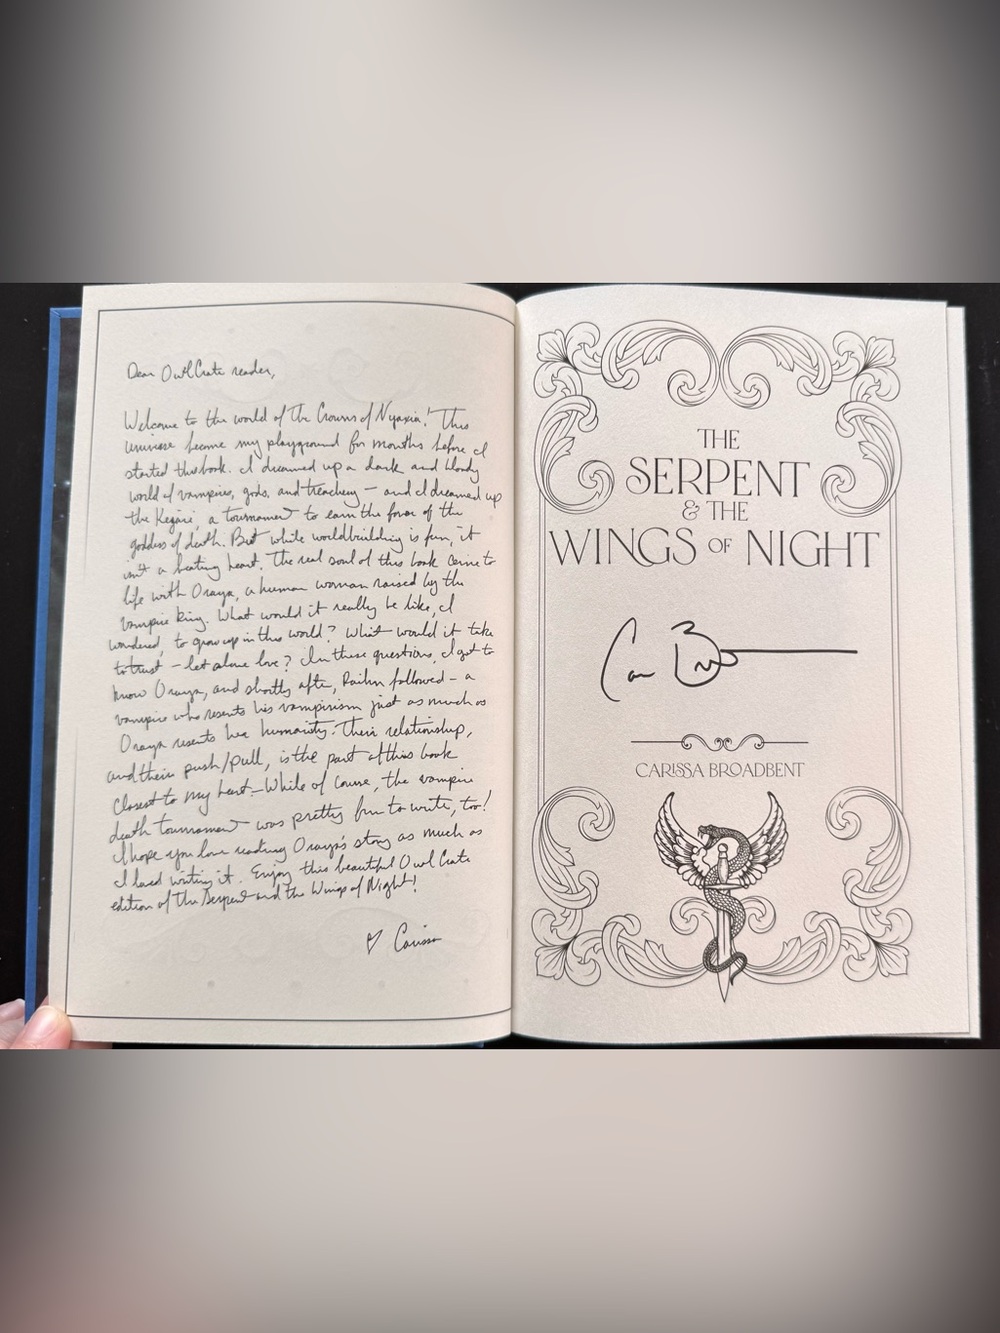 Dear OwlCrate reader,
Welcome to the world of the Crowns of Nyaxia! This
universe became my playground for months before I
started this book. I dreamed up a dark and bloody
world of vampires, gods, and treachery — and I dreamed up
the Kejari, a tournament to earn the favor of the
goddess of death. But while worldbuilding is fun, it
isn't a beating heart. The real soul of this book came to
life with Oraya, a human woman raised by the
vampire king. What would it really be like, I
wondered, to grow up in this world? What would it take
to trust — let alone love? In these questions, I got to
know Oraya, and shortly after, Raihn followed — a
vampire who resents his vampirism just as much as
Oraya resents her humanity. Their relationship,
and their push/pull, is the part of this book
closest to my heart. — While of course, the vampire
death tournament was pretty fun to write, too!
I hope you love reading Oraya's story as much as
I loved writing it. Enjoy this beautiful OwlCrate
edition of The Serpent and the Wings of Night!
♡ Carissa
THE
SERPENT
& THE
WINGS OF NIGHT
CARISSA BROADBENT